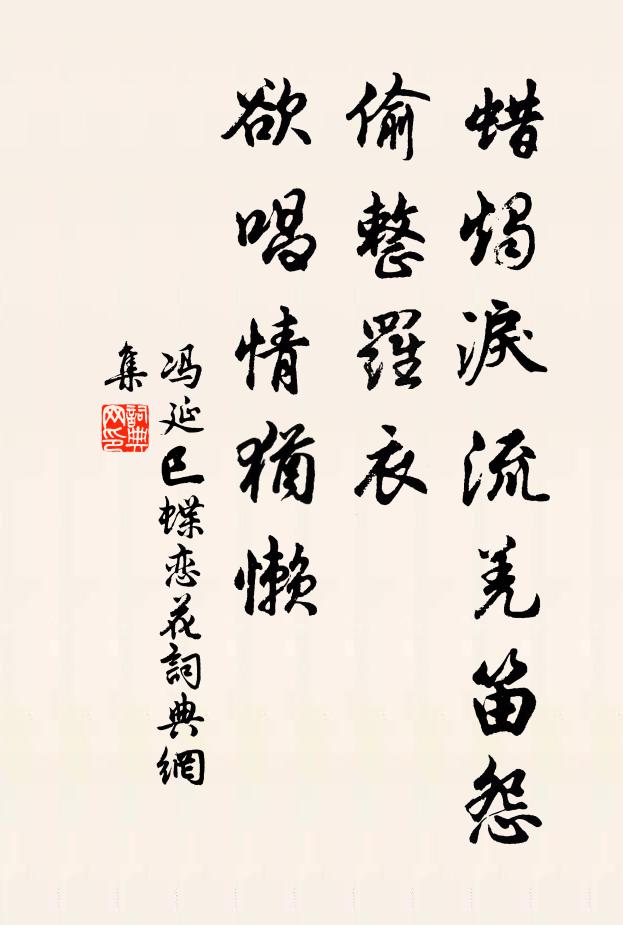 蜡燭淚流羌笛怨
偷整羅衣
欲唱情猶懒
冯延巳蝶恋花詞典網
集
詞典網印